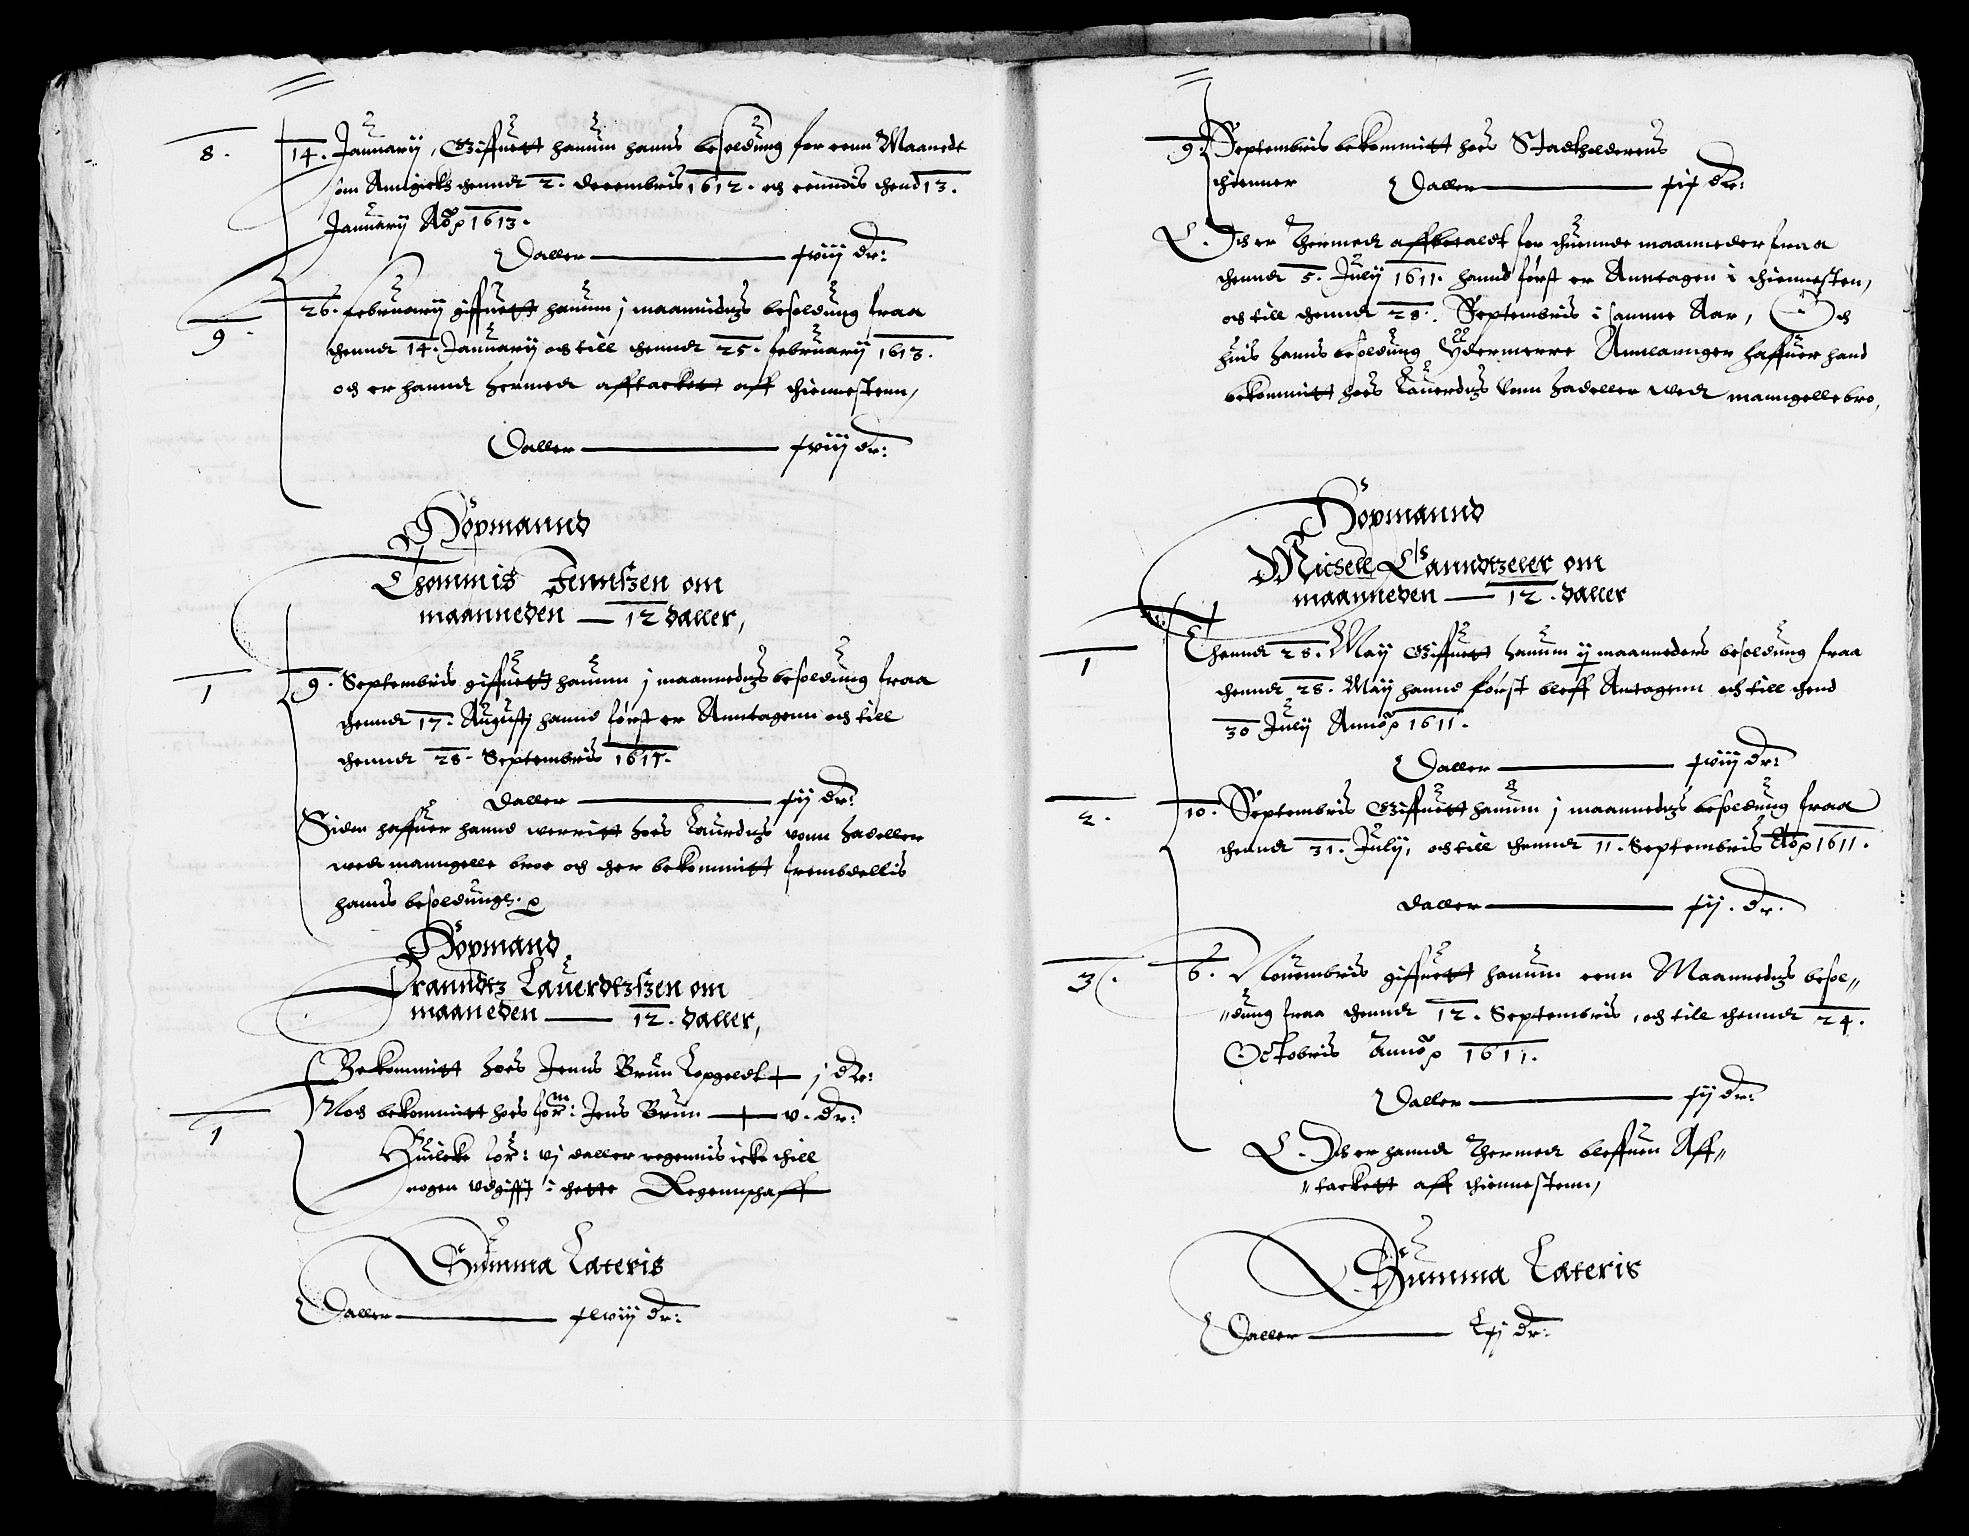 8.
14. Januarij, Giffuett hanum hanns besoldung for eenn Maanedt
som Anngick thenndt 2. decembris 1612. och enndis thend 13.
Januarij Aōp 1613.
Daller — xviij dr:
9.
26. februarij giffuett hanum j maannidtz besoldung fraa
thenndt 14. Januarij och till thenndt 25. februarij 1613.
och er hannd hermedt afftackett aff thiennestenn,
Daller — xviij dr:
Höpmannd
Thommis Jennszen om
maanneden — 12 daller,
1
9. Septembris giffuett hanum j maannedtz besoldung fraa
thenndt 17. Augustj hannd først er Anntagenn och till
thenndt 28. Septembris 1611.
Daller — xij dr:
Siden haffuer hannd werritt hoes Laurdtz vonn Hadeller
wed manngelle broe och ther bekommitt frembdellis
hanns besoldungh. p
Höpmand
Franndtz Lauerdtzszen om
maaneden — 12. daller,
Bekommitt hoes Jenns Brun Lopgeldt — j dr:
1
Noch bekommitt hoes for:m Jens Brun — v. dr:
Huilcke for: vj daller regennis icke thill
nogen vdgifft i thette Regennschaff
Summa Lateris
Daller — xlviij dr:
9. Septembris bekommitt hoes Stadtholderens
thienner Daller — xix dr:
Och er thermedt affbetaldt for thuennde maanneder fraa
thenndt 5. Julij 1611. hannd først er Anntagen i thiennesten,
och till thenndt 28. Septembris i samme Aar, Och
huis hanns besoldung Ydermerre Annlannger haffuer hand
bekommitt hoes Lauerdtz vonn Hadeller wedt manngelle bro,
Höpmannd
Michell Canndtzeler om
maanneden — 12. daller
1
Thenndt 28. Maij Giffuett hanum ij maanneders besoldung fraa
thenndt 28. Maij hannd først bleff Antagenn och till thend
30 Julij Annōp 1611.
Daller — xviij dr:
2.
10. Septembris Giffuett hanum j maannedtz besoldung fraa
thenndt 31. Julij, och till thenndt 11. Septembris Aōp 1611.
Daller — xij. dr.
3.
6. Nouembris giffuett hanum eenn Maannedtz besol„
„dung fraa thenndt 12. Septembris, och till thenndt 24.
Octobris Annōp 1611.
Daller — xij dr:
Och er hannd thermedt bleffuen Aff„
„tackett aff thiennestenn,
Summa Lateris
Daller — Lxj dr: